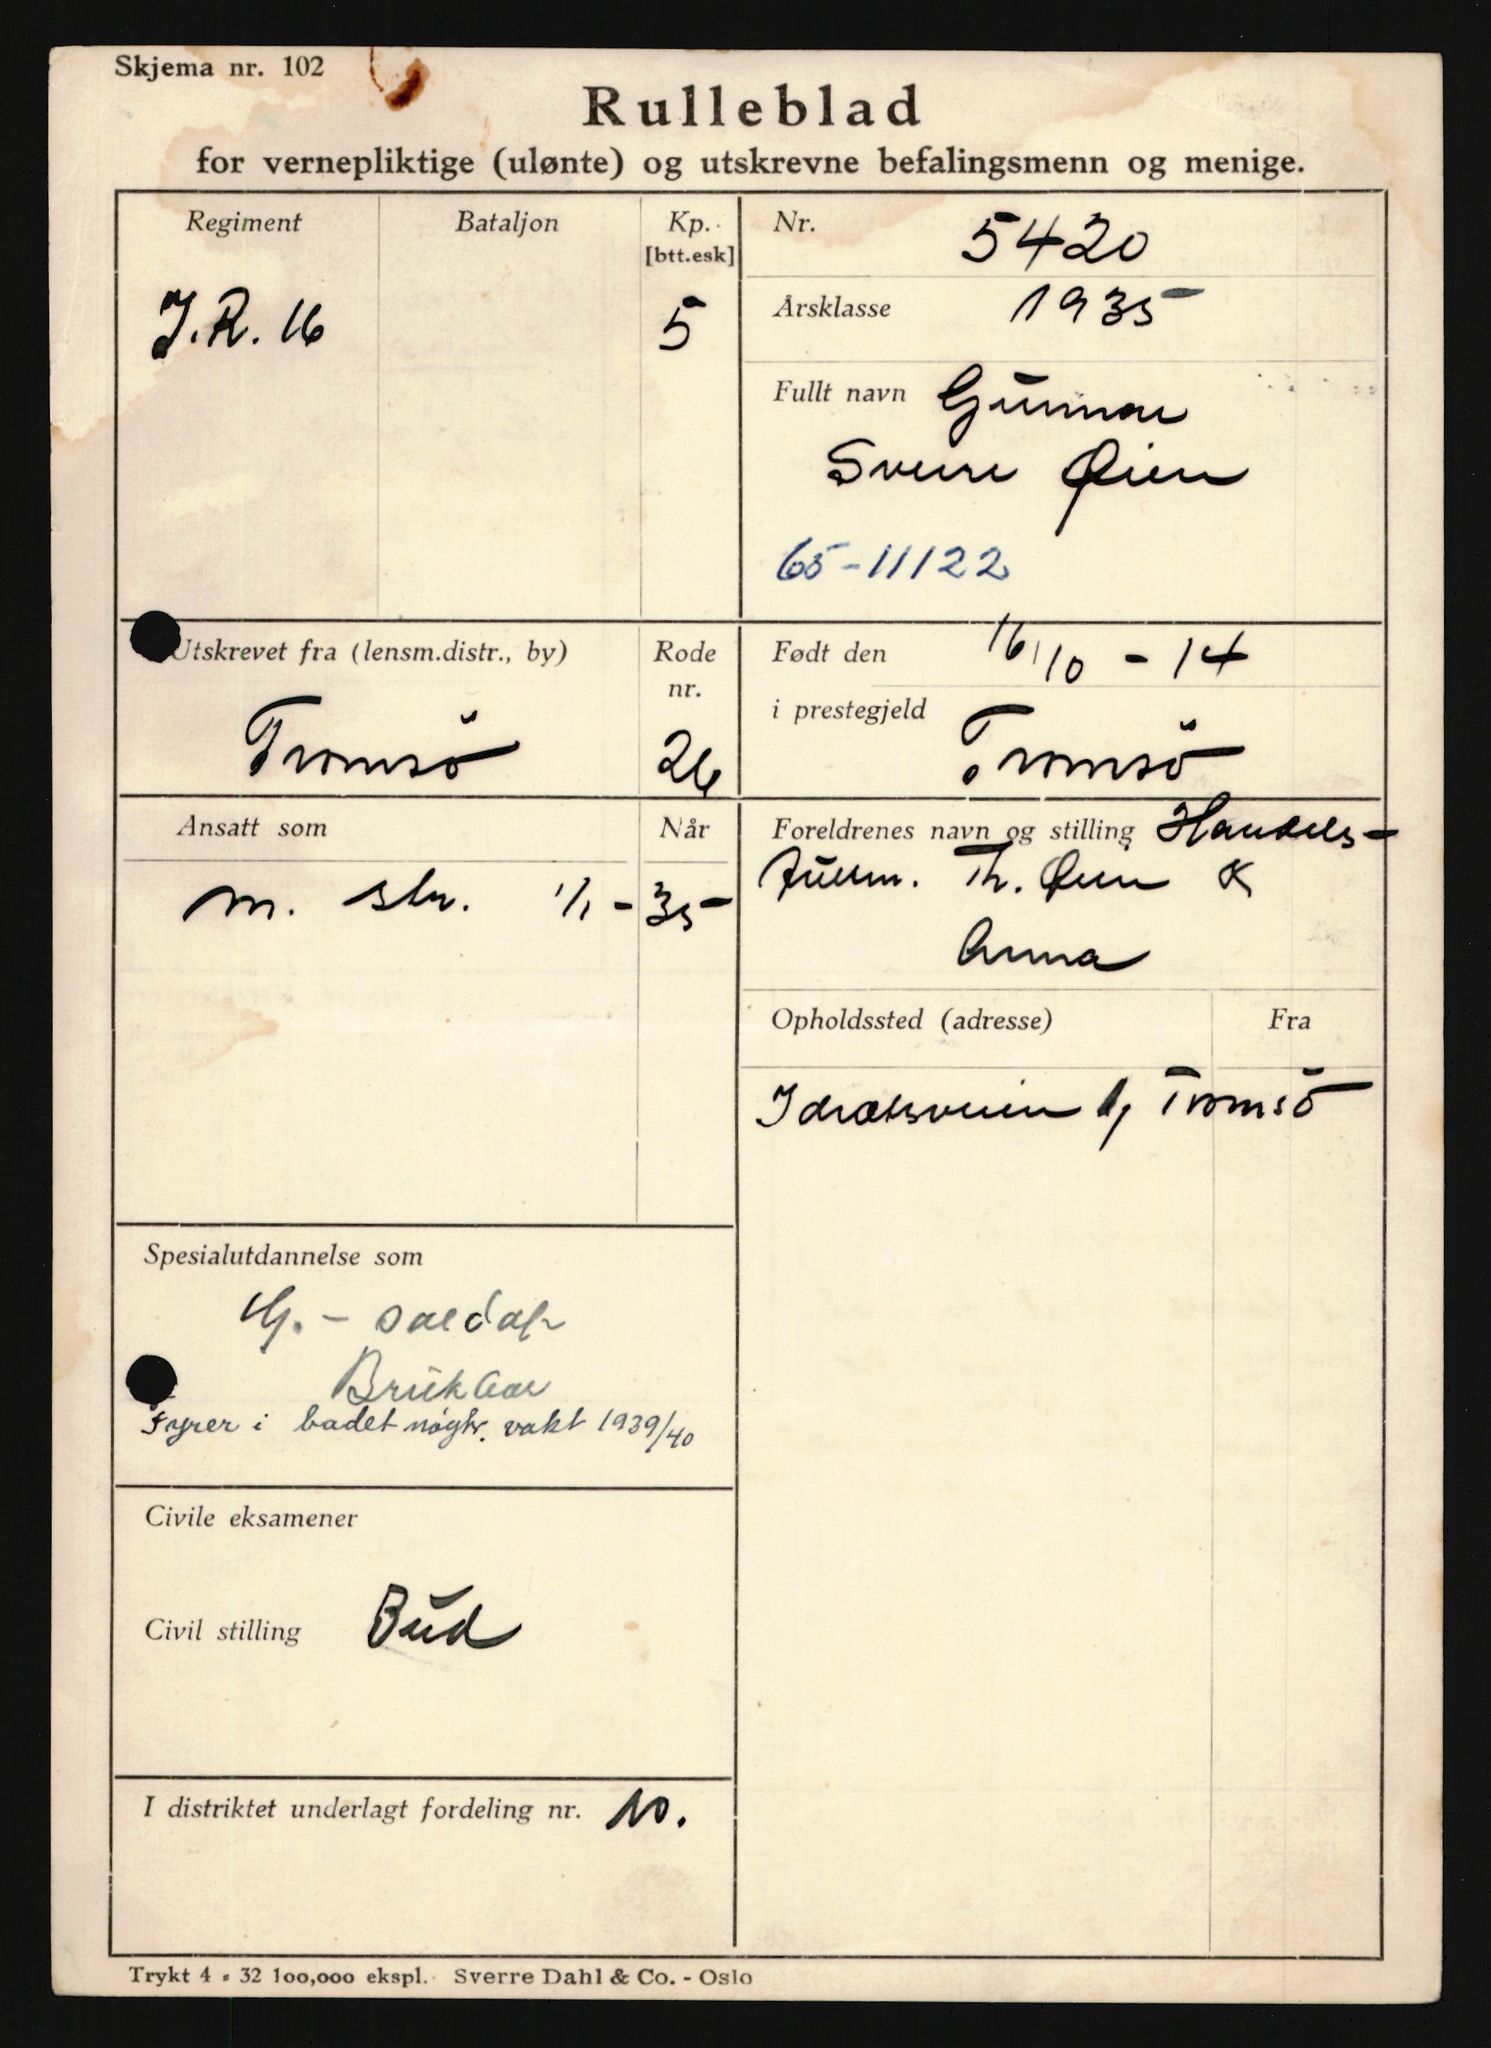 Skjema nr. 102
Rulleblad
for vernepliktige (ulønte) og utskrevne befalingsmenn og menige.
Regiment
Bataljon
Kp.
[btt.esk]
J.R. 16
5
Nr. 5420
Årsklasse 1935
Fullt navn Gunnar
Sverre Øien
65-11122
Utskrevet fra (lensm.distr., by)
Rode
nr.
Tromsö
26
Født den 16/10 - 14
i prestegjeld Tromsö
Ansatt som
Når
m. str. 1/1 - 35
Foreldrenes navn og stilling Handels-
fullm. Th. Øien &
Anna
Opholdssted (adresse)
Fra
Idrætsveien Tromsö
Spesialutdannelse som
G. - soldat
Brukbar
Fyrer i badet nøytr. vakt 1939/40
Civile eksamener
Civil stilling Bud
I distriktet underlagt fordeling nr. 10.
Trykt 4 - 32 100,000 ekspl. Sverre Dahl & Co. - Oslo